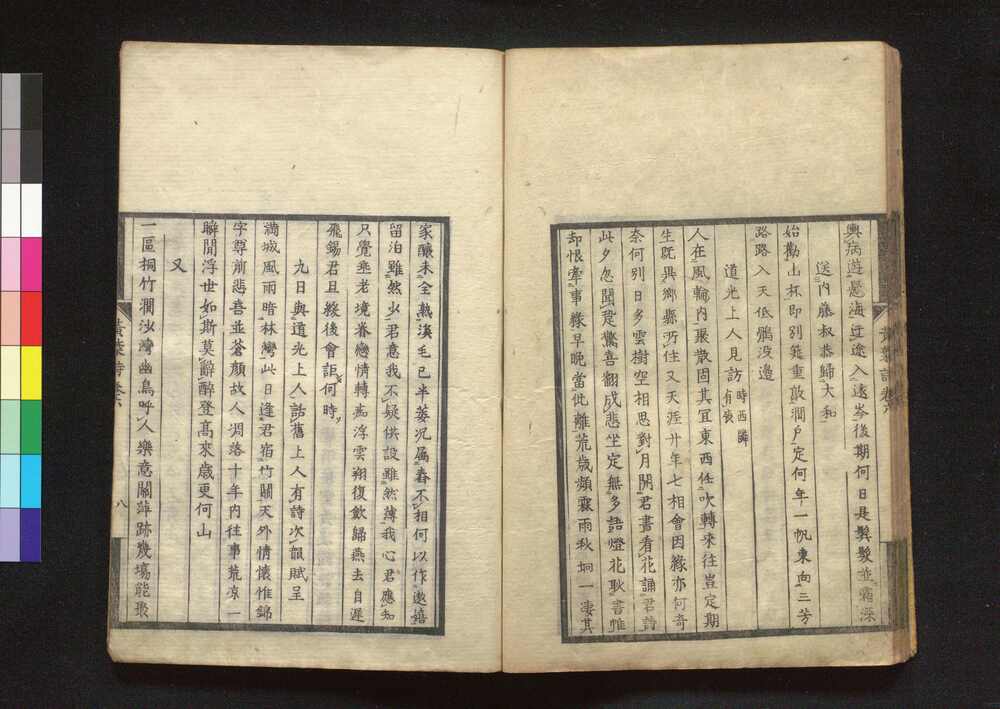 興病遊鬘海土途入遠岑後期何日是鬂髮並霜深
送內藤叔恭歸大和
始勸山杯即別筵重敲澗戶定何年一帆東向三芳
路路入天低鶻沒邊
道光上人見訪時西隣有喪
人在風輪內聚散固其宜東西任吹轉來往豈定期
生既異鄉縣所住又天涯廿年七相會因緣亦何奇
奈何別日多雲樹空相思對月開君書看花誦君詩
此夕忽聞跫驚喜翻成悲坐定無多語燈花耿書帷
却恨牽事緣早晚當此離荒歲頻霖雨秋垌一凄其
黃葉詩卷六
家釀未全熟溪毛已半萎況屬舂不相何以作遨嬉
留泊雖然少君意我不疑供設雖然薄我心君應知
只覺垂老境眷戀情轉爲浮雲翔復飲歸燕去自遲
飛錫君且緩後會詎何時
九日與道光上人話舊上人有詩次韻賦呈
滿城風雨暗林彎此日逢君宿竹關天外情懷惟錦
字尊前悲喜並蒼顏故人凋落十年內往事荒凉一
瞬間浮世如斯莫辭醉登高來歲更何山
又
一區桐竹澗沙灣幽鳥呼人樂意關萍跡幾場能聚
黃葉詩卷六
八